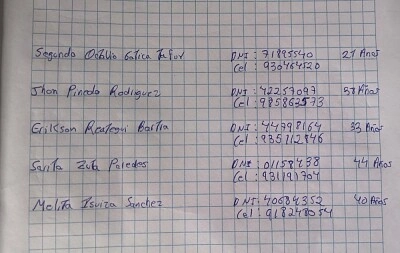 Segundo Octilio Gatica Tafur DNI : 71895540 27 Años
Cel : 930464520
Jhon Pinedo Rodriguez DNI : 42257097 38 Años
Cel : 985862573
Erikson Reategui Bartra DNI : 44798164 33 Años
Cel : 935112846
Sarita Zuta Paredes DNI : 01158438 44 Años
Cel : 931191704
Melita Isuiza Sanchez DNI : 40684352 40 Años
Cel : 918248054